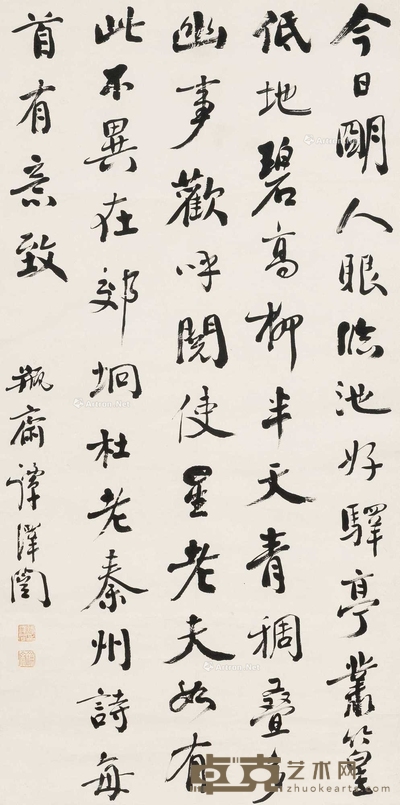 今日朙人眼臨池好驛亭叢篁
低地碧高柳半天青稠疊多
幽事歡呼閱使星老夫如有
此不異在郊坰杜老秦州詩每
首有意致
瓶齋譚澤闓
卓克艺术网
www.zhuokearts.com